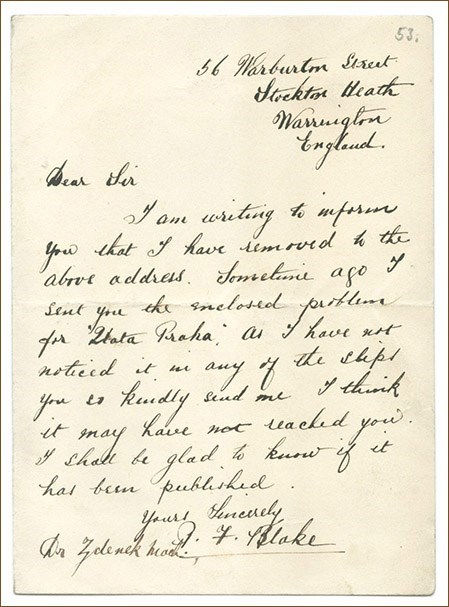 53.
56 Warburton Street
Stockton Heath
Warrington
England.
Dear Sir
I am writing to inform
you that I have removed to the
above address. Sometime ago I
sent you the enclosed problem
for "Zlata Praha". As I have not
noticed it in any of the slips
you so kindly send me I think
it may have not reached you.
I shall be glad to know if it
has been published.
Yours Sincerely
P. F. Blake
Dr Zdenek Mach.